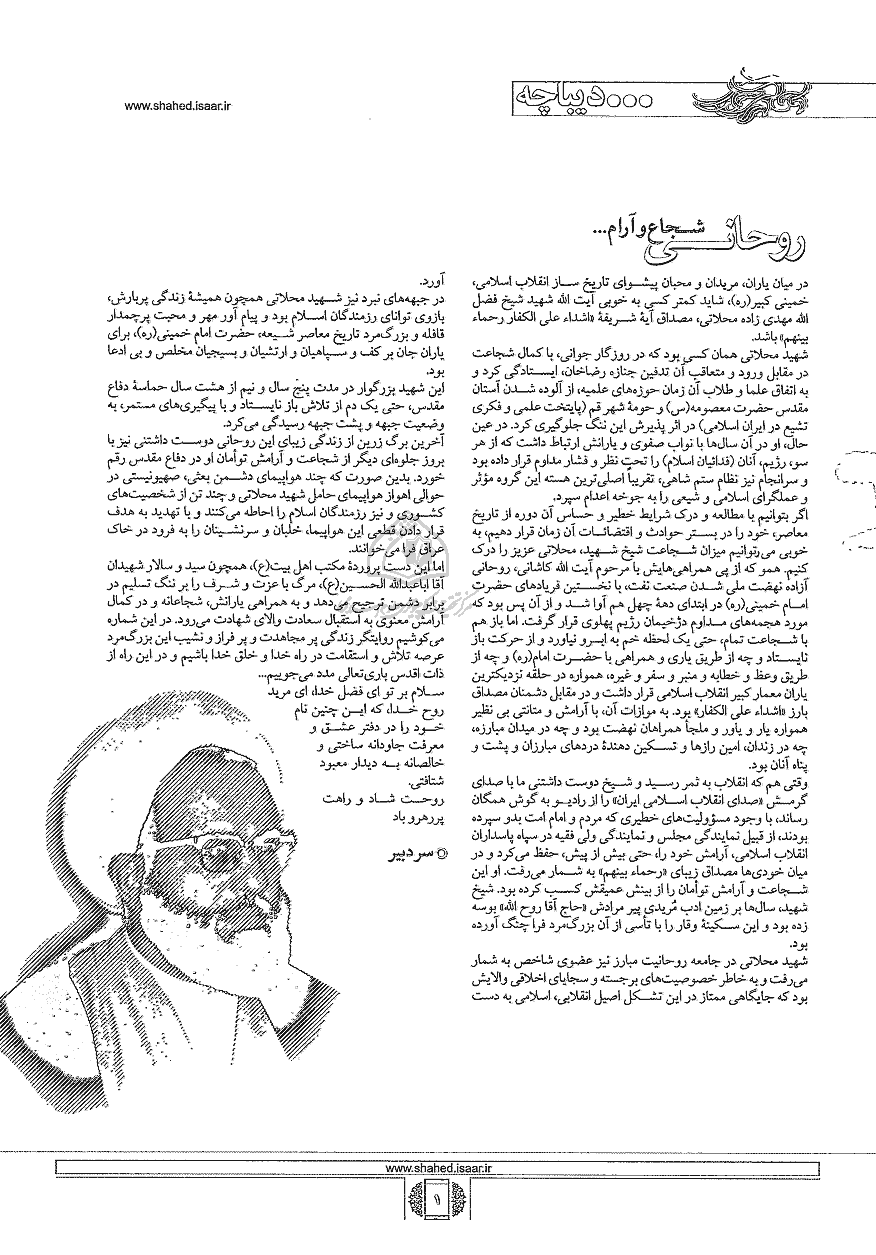 www.shahed.isaar.ir
دیباچه
روحانی شجاع و آرام...
در میان یاران، مریدان و محبان پیشوای تاریخ ساز انقلاب اسلامی،
خمینی کبیر(ره)، شاید کمتر کسی به خوبی آیت الله شهید شیخ فضل
الله مهدی زاده محلاتی، مصداق آیهٔ شریفهٔ «اشداء علی الکفار رحماء
بینهم» باشد.
شهید محلاتی همان کسی بود که در روزگار جوانی، با کمال شجاعت
در مقابل ورود و متعاقب آن تدفین جنازه رضاخان، ایستادگی کرد و
به اتفاق علما و طلاب آن زمان حوزه‌های علمیه، از آلوده شدن آستان
مقدس حضرت معصومه(س) و حومهٔ شهر قم (پایتخت علمی و فکری
تشیع در ایران اسلامی) در اثر پذیرش این ننگ جلوگیری کرد. در عین
حال، او در آن سال‌ها با نواب صفوی و یارانش ارتباط داشت که از هر
سو، رژیم، آنان (فدائیان اسلام) را تحت نظر و فشار مداوم قرار داده بود
و سرانجام نیز نظام ستم شاهی، تقریباً اصلی‌ترین هسته این گروه مؤثر
و عملگرای اسلامی و شیعی را به جوخه اعدام سپرد.
اگر بتوانیم با مطالعه و درک شرایط خطیر و حساس آن دوره از تاریخ
معاصر، خود را در بستر حوادث و اقتضائات آن زمان قرار دهیم، به
خوبی می‌توانیم میزان شجاعت شیخ شهید، محلاتی عزیز را درک
کنیم. همو که از پی همراهی‌هایش با مرحوم آیت الله کاشانی، روحانی
آزاده نهضت ملی شدن صنعت نفت، با نخستین فریادهای حضرت
امام خمینی(ره) در ابتدای دههٔ چهل هم آوا شد و از آن پس بود که
مورد هجمه‌های مداوم دژخیمان رژیم پهلوی قرار گرفت. اما باز هم
با شجاعت تمام، حتی یک لحظه خم به ابرو نیاورد و از حرکت باز
نایستاد و چه از طریق یاری و همراهی با حضرت امام(ره) و چه از
طریق وعظ و خطابه و منبر و سفر و غیره، همواره در حلقه نزدیکترین
یاران معمار کبیر انقلاب اسلامی قرار داشت و در مقابل دشمنان مصداق
بارز «اشداء علی الکفار» بود. به موازات آن، با آرامش و متانتی بی نظیر
همواره یار و یاور و ملجأ همراهان نهضت بود و چه در میدان مبارزه،
چه در زندان، امین رازها و تسکین دهندهٔ دردهای مبارزان و پشت و
پناه آنان بود.
وقتی هم که انقلاب به ثمر رسید و شیخ دوست داشتنی ما با صدای
گرمش «صدای انقلاب اسلامی ایران» را از رادیو به گوش همگان
رساند، با وجود مسؤولیت‌های خطیری که مردم و امام امت بدو سپرده
بودند، از قبیل نمایندگی مجلس و نمایندگی ولی فقیه در سپاه پاسداران
انقلاب اسلامی، آرامش خود را، حتی بیش از پیش، حفظ می‌کرد و در
میان خودی‌ها مصداق زیبای «رحماء بینهم» به شمار می‌رفت. او این
شجاعت و آرامش توأمان را از بینش عمیقش کسب کرده بود. شیخ
شهید، سال‌ها بر زمین ادب مُریدی پیر مرادش «حاج آقا روح الله» بوسه
زده بود و این سکینهٔ وقار را با تأسی از آن بزرگمرد فرا چنگ آورده
بود.
شهید محلاتی در جامعه روحانیت مبارز نیز عضوی شاخص به شمار
می‌رفت و به خاطر خصوصیت‌های برجسته و سجایای اخلاقی والایش
بود که جایگاهی ممتاز در این تشکل اصیل انقلابی، اسلامی به دست
آورد.
در جبهه‌های نبرد نیز شهید محلاتی همچون همیشهٔ زندگی پربارش،
بازوی توانای رزمندگان اسلام بود و پیام آور مهر و محبت پرچمدار
قافله و بزرگ‌مرد تاریخ معاصر شیعه، حضرت امام خمینی(ره)، برای
یاران جان بر کف و سپاهیان و ارتشیان و بسیجیان مخلص و بی ادعا
بود.
این شهید بزرگوار در مدت پنج سال و نیم از هشت سال حماسهٔ دفاع
مقدس، حتی یک دم از تلاش باز نایستاد و با پیگیری‌های مستمر، به
وضعیت جبهه و پشت جبهه رسیدگی می‌کرد.
آخرین برگ زرین از زندگی زیبای این روحانی دوست داشتنی نیز با
بروز جلوه‌ای دیگر از شجاعت و آرامش توأمان او در دفاع مقدس رقم
خورد. بدین صورت که چند هواپیمای دشمن بعثی، صهیونیستی در
حوالی اهواز هواپیمای حامل شهید محلاتی و چند تن از شخصیت‌های
کشوری و نیز رزمندگان اسلام را احاطه می‌کنند و با تهدید به هدف
قرار دادن قطعی این هواپیما، خلبان و سرنشینان را به فرود در خاک
عراق فرا می‌خوانند.
اما این دست پروردهٔ مکتب اهل بیت(ع)، همچون سید و سالار شهیدان
آقا اباعبدالله الحسین(ع)، مرگ با عزت و شرف را بر ننگ تسلیم در
برابر دشمن ترجیح می‌دهد و به همراهی یارانش، شجاعانه و در کمال
آرامش معنوی به استقبال سعادت والای شهادت می‌رود. در این شماره
می‌کوشیم روایتگر زندگی پر مجاهدت و پر فراز و نشیب این بزرگ‌مرد
عرصه تلاش و استقامت در راه خدا و خلق خدا باشیم و در این راه از
ذات اقدس باری‌تعالی مدد می‌جوییم...
سلام بر تو ای فضل خدا، ای مرید
روح خدا، که این چنین نام
خود را در دفتر عشق و
معرفت جاودانه ساختی و
خالصانه به دیدار معبود
شتافتی.
روحت شاد و راهت
پررهرو باد
سردبیر
www.shahed.isaar.ir
۱